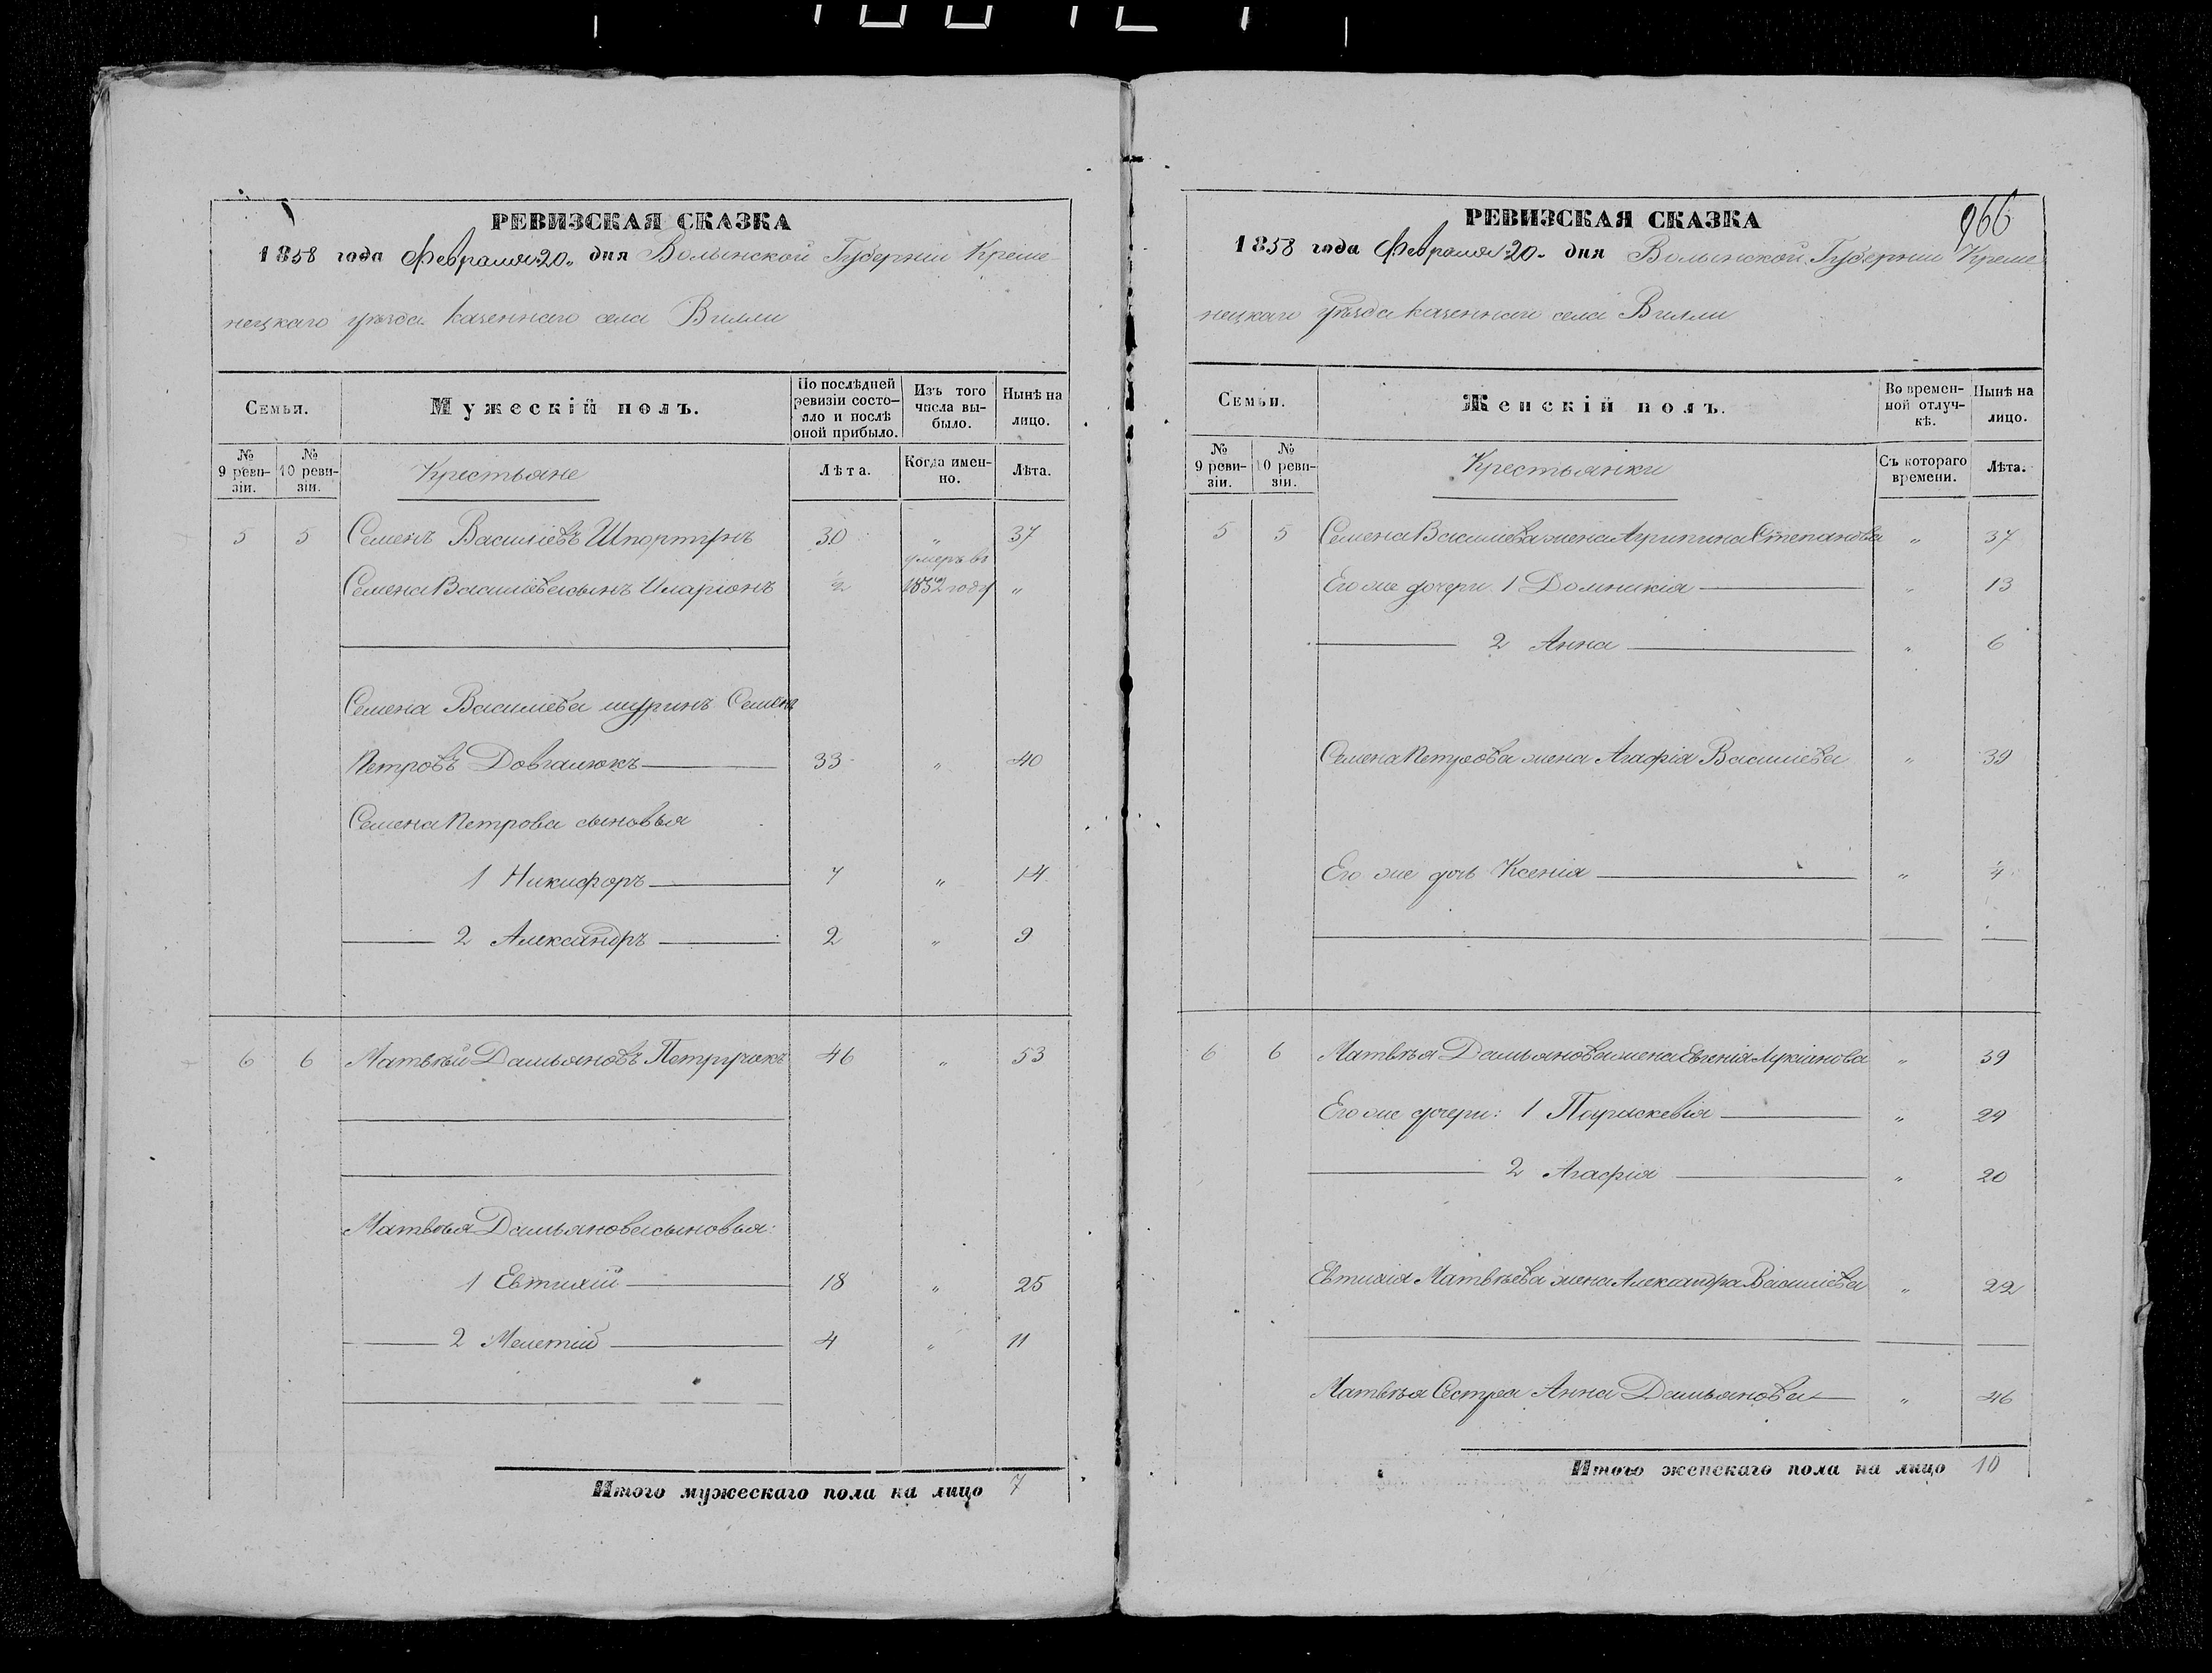 РЕВИЗСКАЯ СКАЗКА
1858 года Февраля 20. дня Волынской Губерніи Креме-
нецкаго уѣзда казеннаго села Вилли
Семьи.
Мужескій полъ.
По послѣдней ревизіи состо-
яло и послѣ
оной прибыло.
Изъ того
числа вы-
было.
Нынѣ на
лицо.
№
9 реви-
зіи.
№
10 реви-
зіи.
Крестьяне
Лѣта.
Когда имен-
но.
Лѣта.
5 5 Семенъ Василіевъ 30 " 37
Семена Василіева сынъ Иларіонъ ½ умеръ въ
1852 году "
Семена Василіева шуринъ Семенъ
Петровъ Довгалюкъ 33 " 40
Семена Петрова сыновья
1 Никифоръ 7 " 14
2 Александръ 2 " 9
6 6 Матвѣй Дамьяновъ Петручокъ 46 " 53
Матвѣя Дамьянова сыновья:
1 Евтихій 18 " 25
2 Мелетій 4 " 11
Итого мужескаго пола на лицо 7
966
РЕВИЗСКАЯ СКАЗКА
1858 года Февраля 20. дня Волынской Губерніи Креме
нецкаго уѣзда казеннаго села Вилли
Семьи.
Женскій полъ.
Во времен-
ной отлуч-
кѣ.
Нынѣ на
лицо.
№
9 реви-
зіи.
№
10 реви-
зіи.
Крестьянки
Съ котораго
времени.
Лѣта.
5 5 Семена Василіева жена Агрипина Степанова " 37
Его же дочери 1 Домникія " 13
2 Анна " 6
Семена Петрова жена Агафія Василіева " 39
Его же дочь Ксенія " 4
6 6 Матвѣя Дамьянова жена Евгенія Лукіанова " 39
Его же дочери: 1 Параскевія " 29
2 Агафія " 20
Евтихія Матвѣева жена Александра Василіева " 22
Матвѣя Сестра Анна Дамьянова " 46
Итого женскаго пола на лицо 10